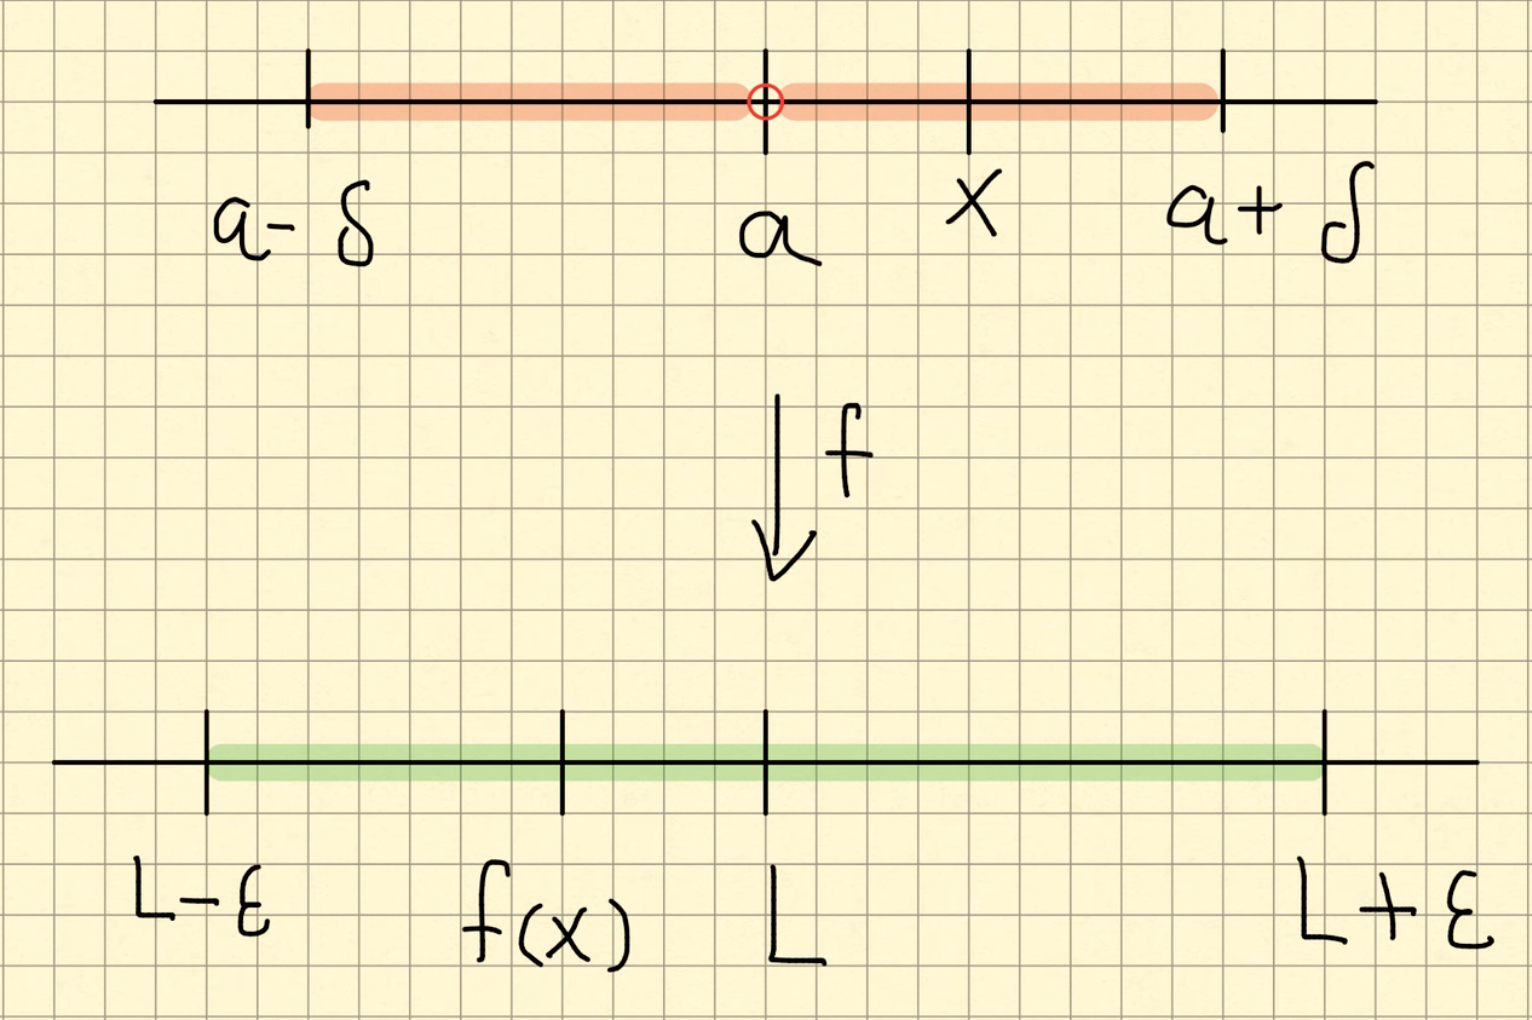 a- δ a x a+ δ
f
L-ε f(x) L L+ε